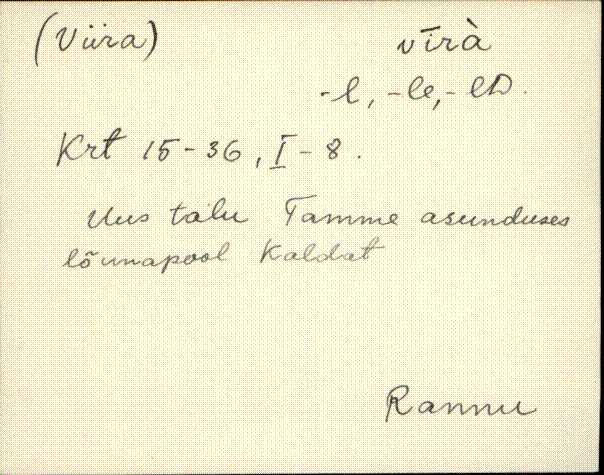 (Viira) vīrà
-l, -le, -lD.
Krt 15-36, I-8.
Uus talu Tamme asunduses
lõunapool Kaldat
Rannu